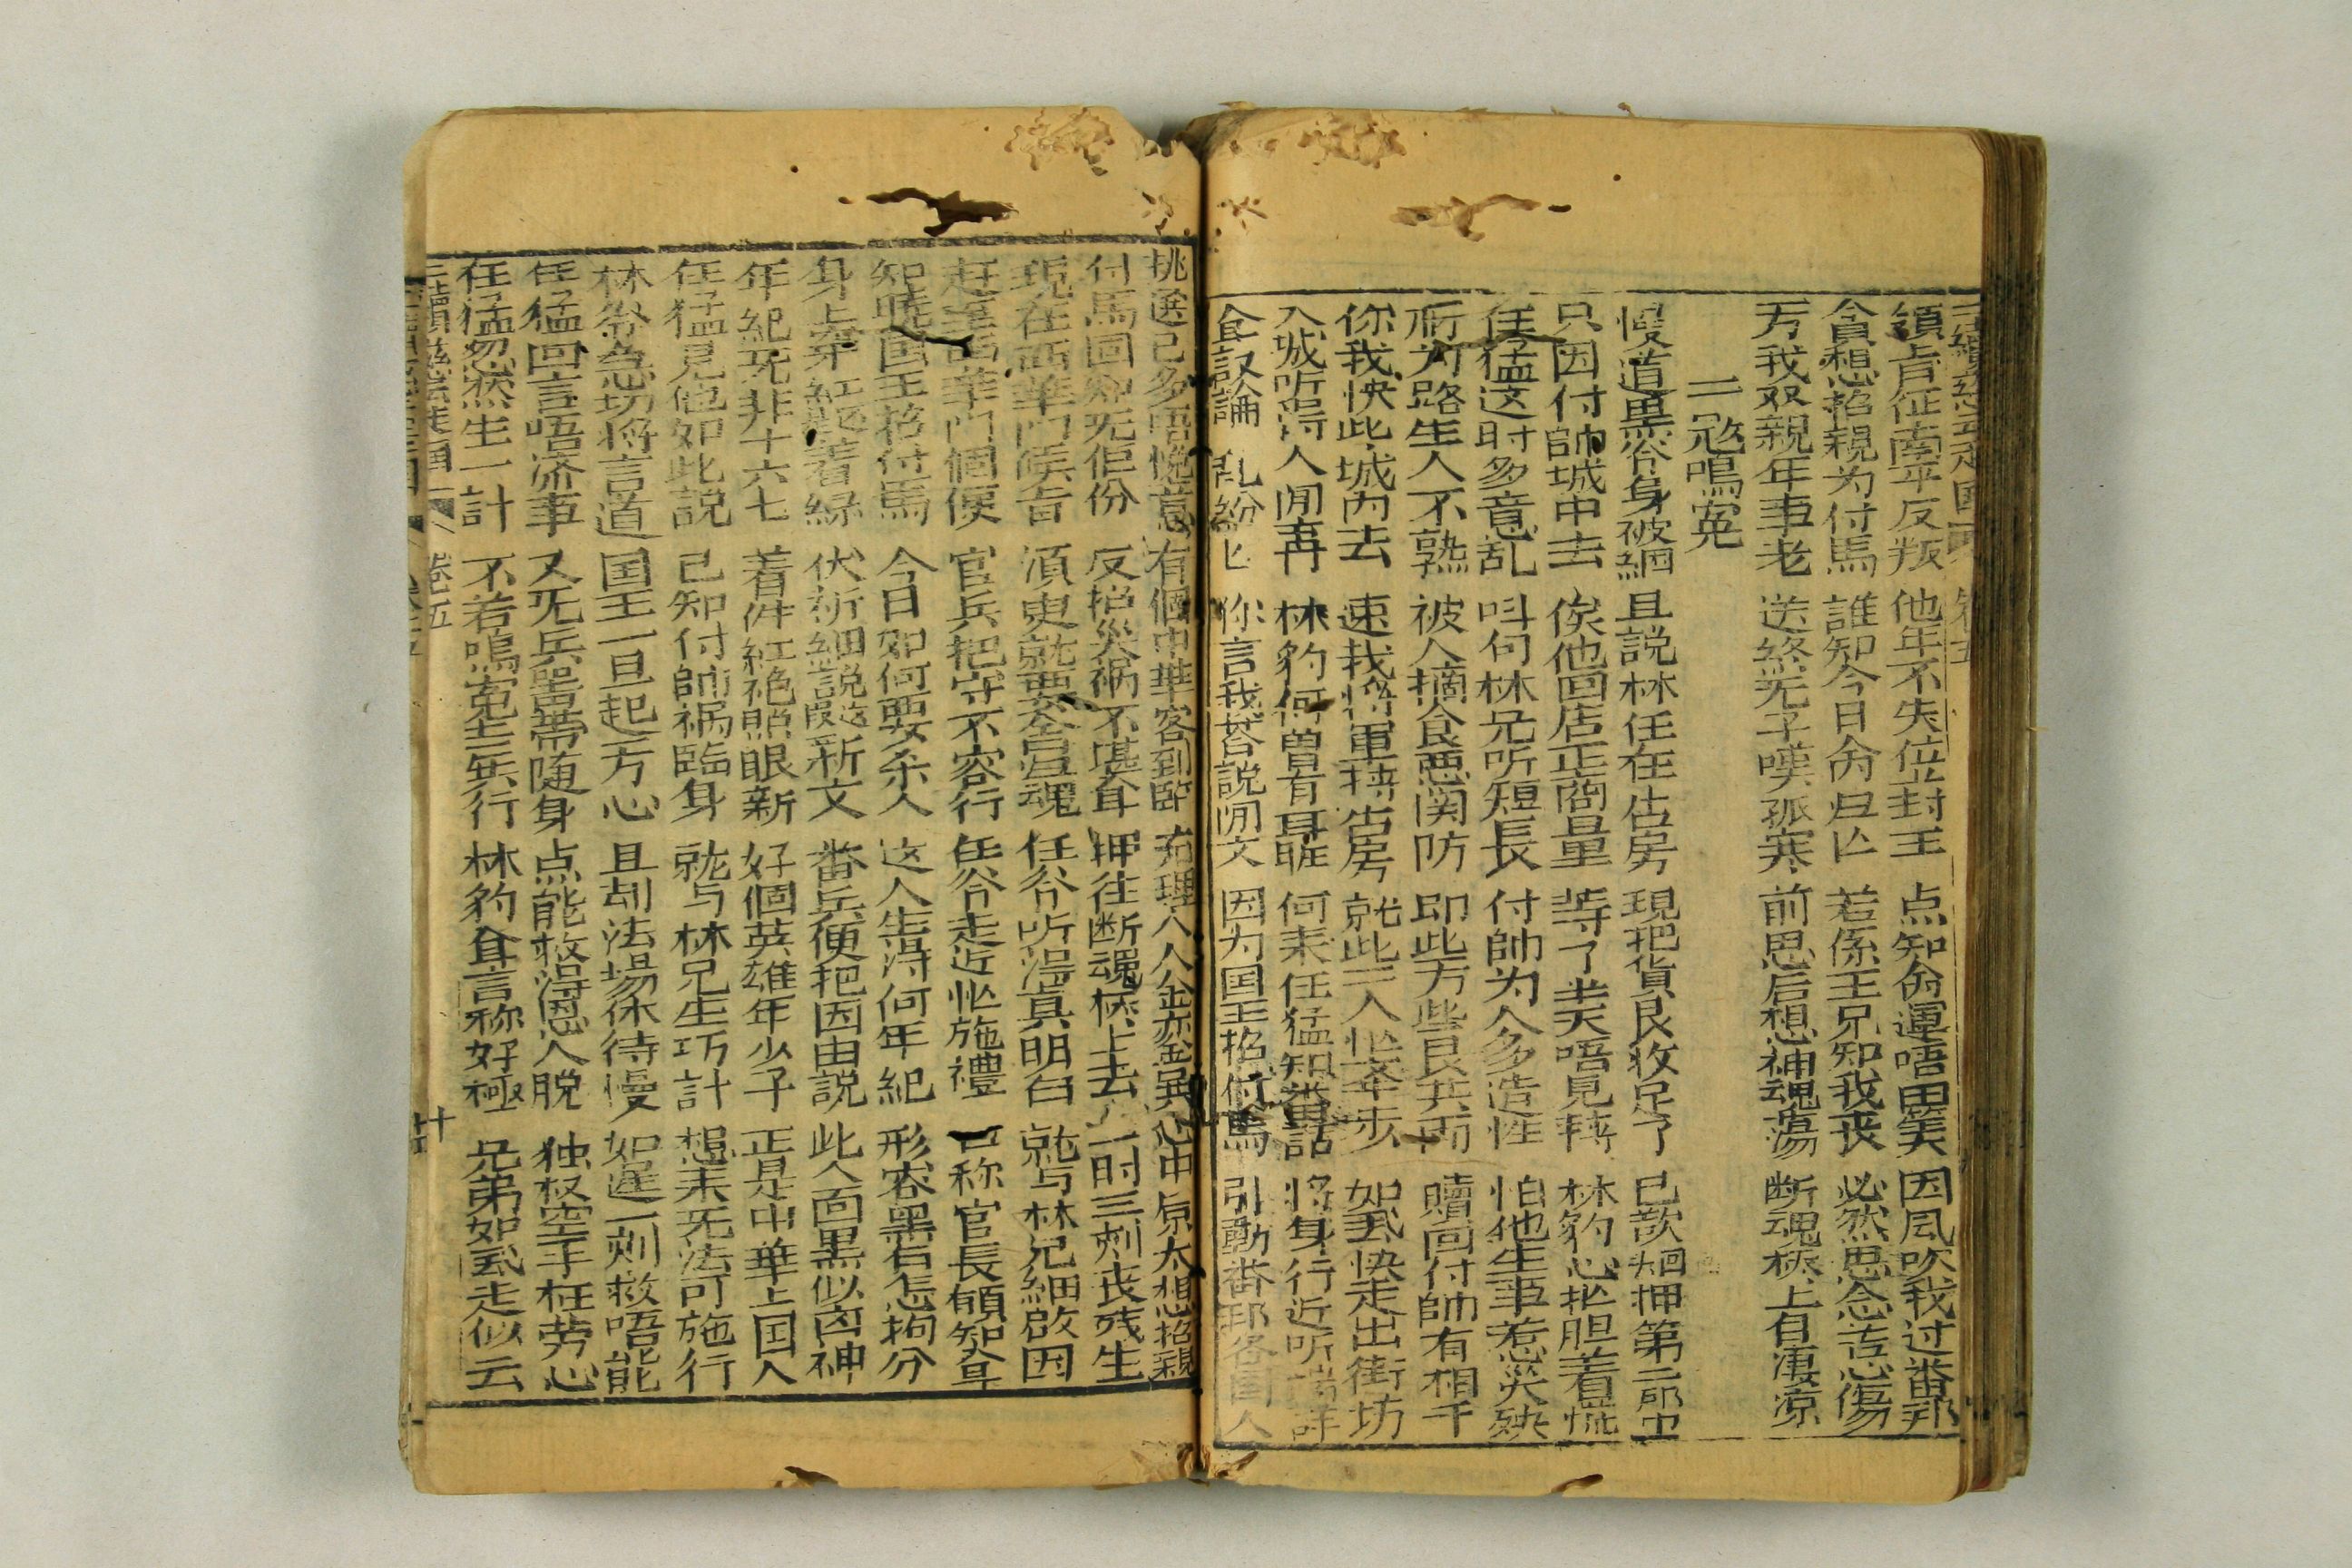 領旨征南平反叛 他年不失位封王 点知命運唔由笑 因風吹我过番邦
貪想招親为付馬 誰知今日命归亡 若係王兄知我丧 必然思念苦心傷
万我双親年事老 送終无子嘆孤寒 前思后想神魂蕩 断魂桥上自凄凉
二凴鳴寃
慢道黑爷身被綑 且説林任在店房 現把貨艮收足了 已
只因付帥城中去 俟他回店正商量 等了半天唔見轉 林豹心忙胆着慌
任猛这时多意乱 叫句林兄听短長 付帥为人多造性 怕他生事惹災殃
所为路生人不熟 被人摘食惡関防 即此方些艮共両 贖回付帥有相干
你我快此城内去 速我将軍轉店房 就此二人忙举步 如飛快走出街坊
入城听得人閒再 林豹何曽有耳聡 何来任猛知番話 将身行近听端詳
会議論 乱紛匕 你言我答説閒文 因为国王招付馬 引動番邦各国人
挑選已多唔悦意 有個中華客到臨 充理八人 心中原太想招親
付馬回知无佢份 反招災祸不堪 押往断魂桥上去 一时三刻丧残生
現在西華门候旨 須臾就要 魂 任爷听得真明白 就与林兄細啟因
赶至西華门個便 官兵把守不容行 任爷走近忙施禮 口称官長願知
知聴国王招付馬 今日如何要杀人 这人生得何年紀 形容黑白怎拘分
身上穿紅鞋着緑 伏祈細説这段新文 番兵便把因由説 此人面黒似凶神
年紀无非十六七 着件紅袍照眼新 好個英雄年少子 正是中華上国人
任猛見他如此説 己知付帥祸臨身 就与林兄生巧計 想来无法可施行
林爷急切将言道 国王一旦起方心 且刧法場休待慢 如遲一刻救唔能
任猛回言唔済事 又无兵器带随身 点能救得恩人脱 独权空手枉劳心
任猛忽然生一計 不若鳴寃去一行 林豹 言称好極 兄弟如飛走似云
卷五
十